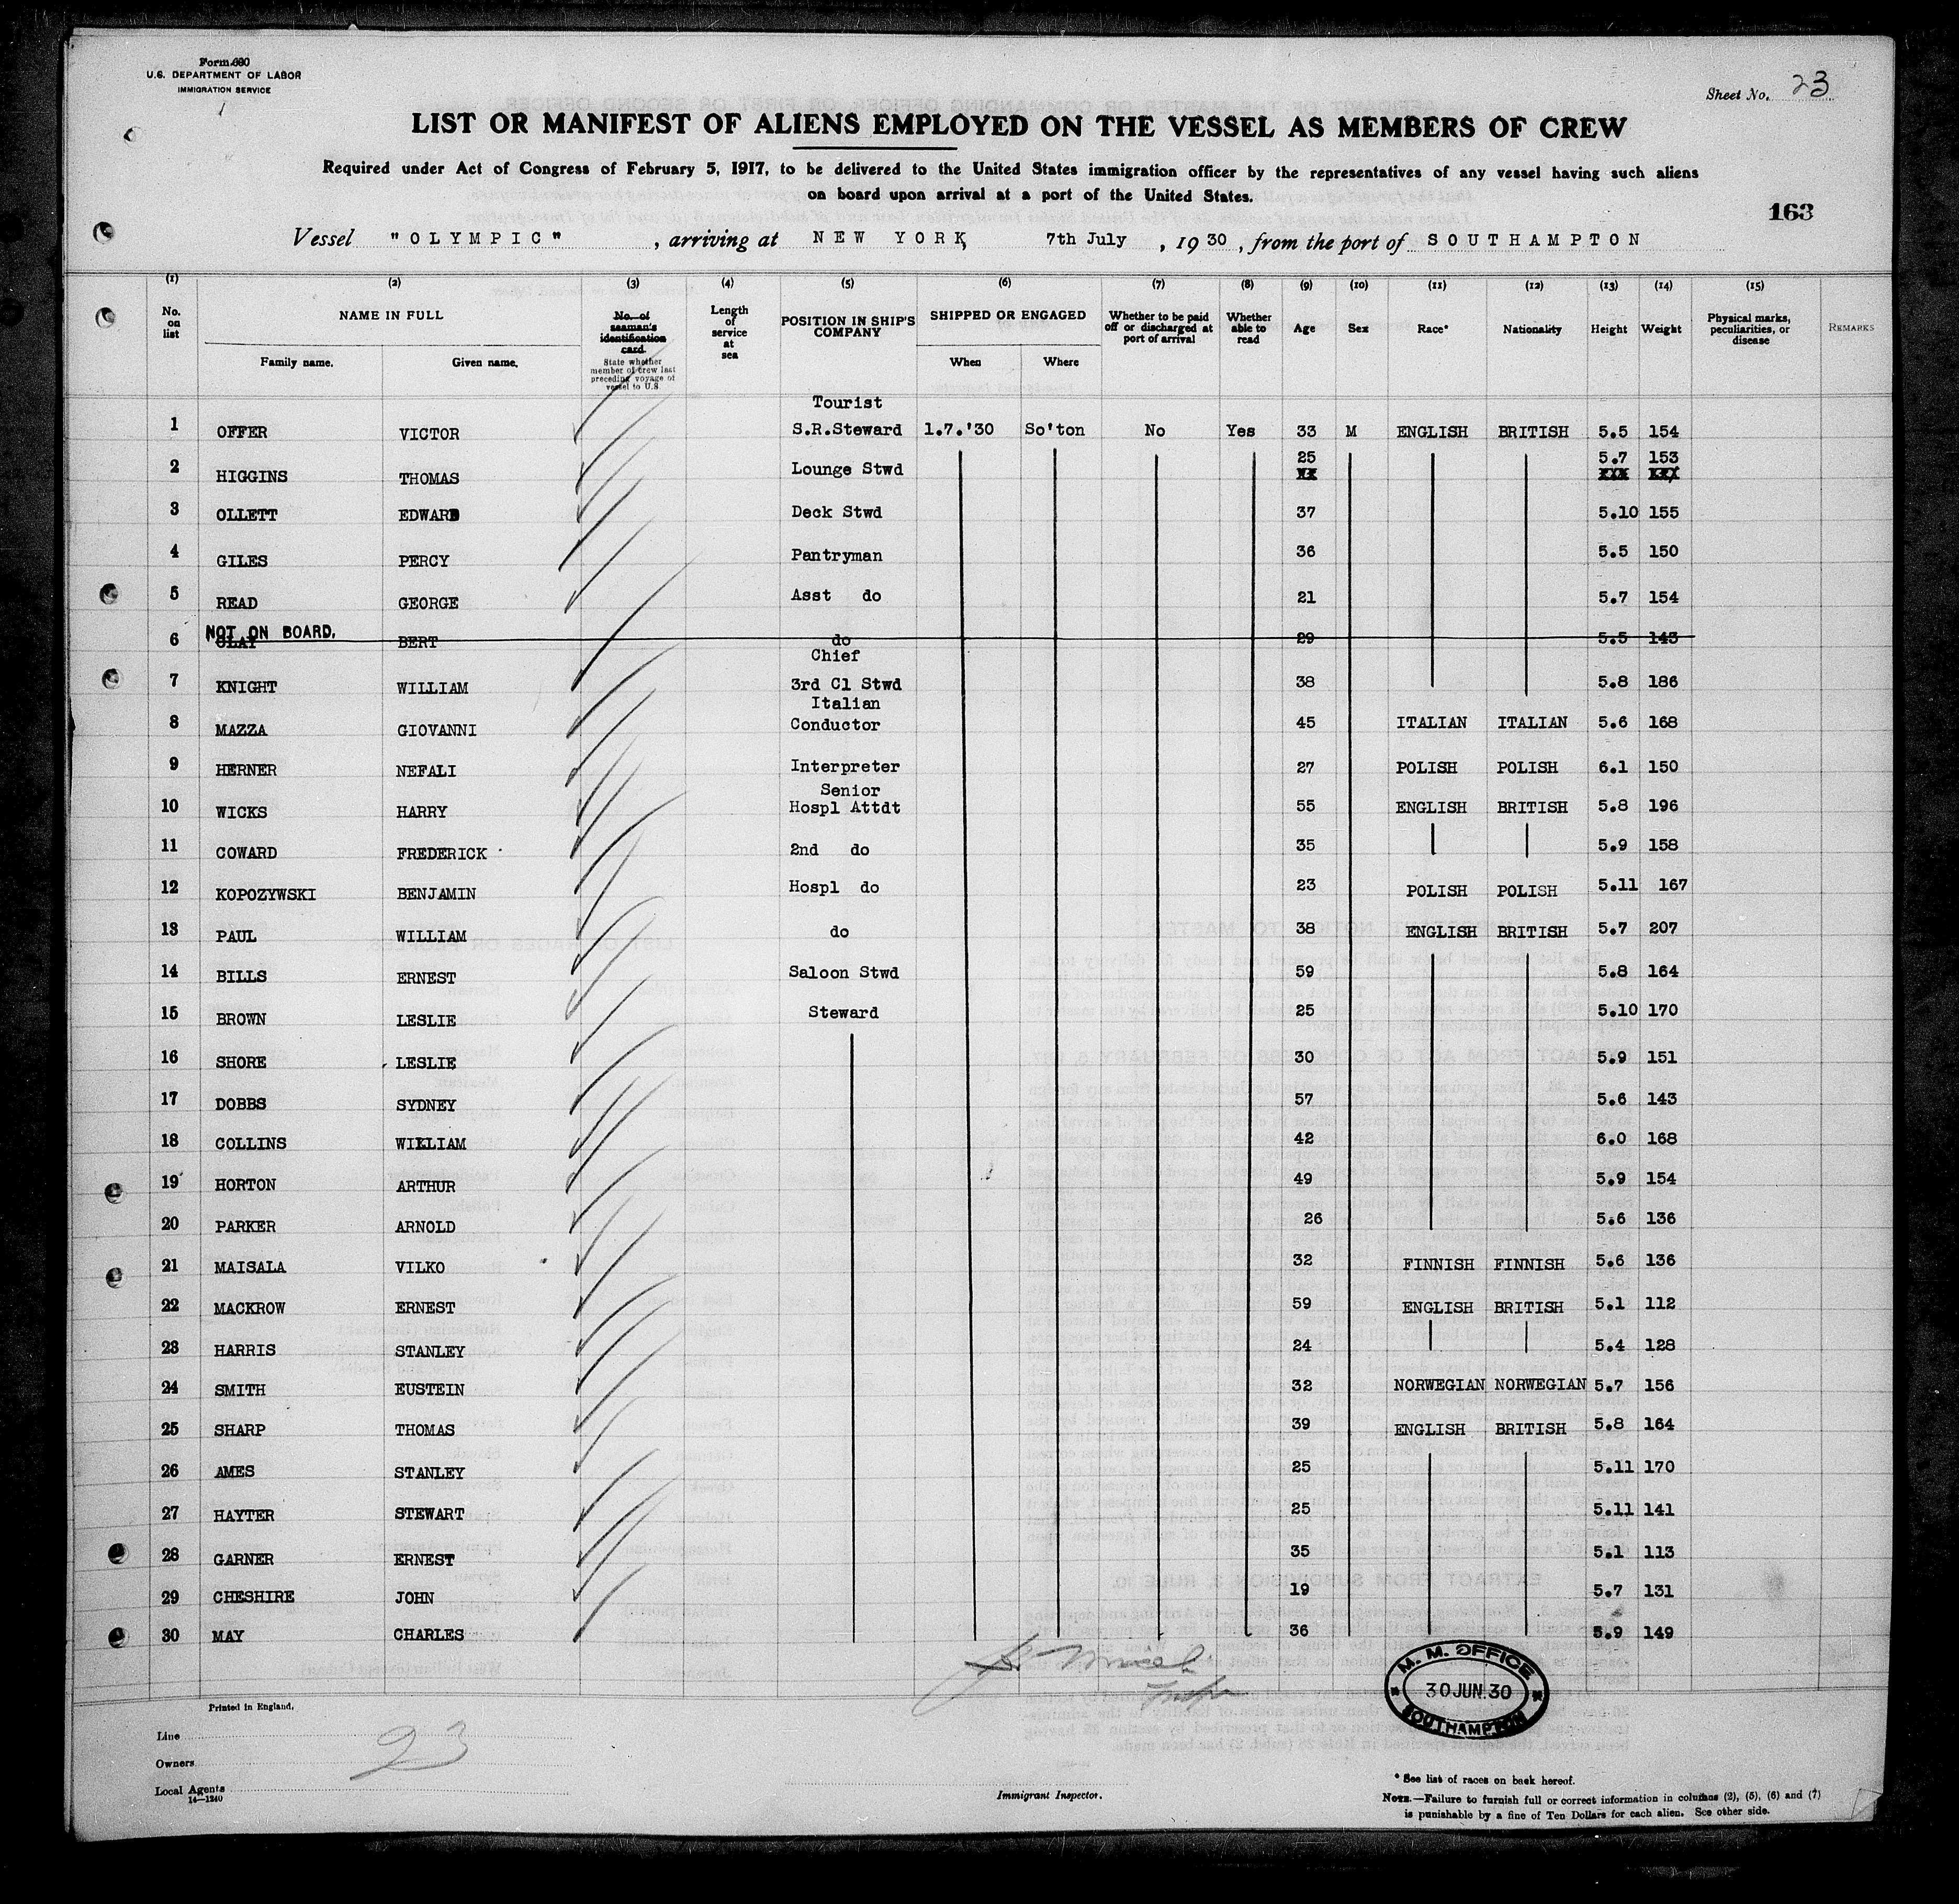 Form 680
U.S. DEPARTMENT OF LABOR
IMMIGRATION SERVICE
Sheet No. 23
LIST OR MANIFEST OF ALIENS EMPLOYED ON THE VESSEL AS MEMBERS OF CREW
Required under Act of Congress of February 5, 1917, to be delivered to the United States immigration officer by the representatives of any vessel having such aliens
on board upon arrival at a port of the United States.
163
Vessel "OLYMPIC", arriving at NEW YORK, 7th July, 1930, from the port of SOUTHAMPTON
(1) (2) (3) (4) (5) (6) (7) (8) (9) (10) (11) (12) (13) (14) (15)
No. on list
NAME IN FULL
Family name. Given name.
No. of seaman's identification card
State whether member of crew last preceding voyage of vessel to U.S.
Length of service at sea
POSITION IN SHIP'S COMPANY
SHIPPED OR ENGAGED
When Where
Whether to be paid off or discharged at port of arrival
Whether able to read
Age
Sex
Race*
Nationality
Height
Weight
Physical marks, peculiarities, or disease
REMARKS
Tourist
1 OFFER VICTOR S.R.Steward 1.7.'30 So'ton No Yes 33 M ENGLISH BRITISH 5.5 154
2 HIGGINS THOMAS Lounge Stwd 25 5.7 153
3 OLLETT EDWARD Deck Stwd 37 5.10 155
4 GILES PERCY Pantryman 36 5.5 150
5 READ GEORGE Asst do 21 5.7 154
NOT ON BOARD.
6 CLAY BERT do 29 5.5 143
Chief
7 KNIGHT WILLIAM 3rd Cl Stwd 38 5.8 186
Italian
8 MAZZA GIOVANNI Conductor 45 ITALIAN ITALIAN 5.6 168
9 HERNER NEFALI Interpreter 27 POLISH POLISH 6.1 150
Senior
10 WICKS HARRY Hospl Attdt 55 ENGLISH BRITISH 5.8 196
11 COWARD FREDERICK 2nd do 35 5.9 158
12 KOPOZYWSKI BENJAMIN Hospl do 23 POLISH POLISH 5.11 167
13 PAUL WILLIAM do 38 ENGLISH BRITISH 5.7 207
14 BILLS ERNEST Saloon Stwd 59 5.8 164
15 BROWN LESLIE Steward 25 5.10 170
16 SHORE LESLIE 30 5.9 151
17 DOBBS SYDNEY 57 5.6 143
18 COLLINS WILLIAM 42 6.0 168
19 HORTON ARTHUR 49 5.9 154
20 PARKER ARNOLD 26 5.6 136
21 MAISALA VILKO 32 FINNISH FINNISH 5.6 136
22 MACKROW ERNEST 59 ENGLISH BRITISH 5.1 112
23 HARRIS STANLEY 24 5.4 128
24 SMITH EUSTEIN 32 NORWEGIAN NORWEGIAN 5.7 156
25 SHARP THOMAS 39 ENGLISH BRITISH 5.8 164
26 AMES STANLEY 25 5.11 170
27 HAYTER STEWART 25 5.11 141
28 GARNER ERNEST 35 5.1 113
29 CHESHIRE JOHN 19 5.7 131
30 MAY CHARLES 36 5.9 149
M. M. OFFICE
30 JUN. 30
SOUTHAMPTON
Printed in England.
Line
23
Owners
Local Agents
14—1240
Immigrant Inspector.
* See list of races on back hereof.
NOTE.—Failure to furnish full or correct information in columns (2), (5), (6) and (7)
is punishable by a fine of Ten Dollars for each alien. See other side.